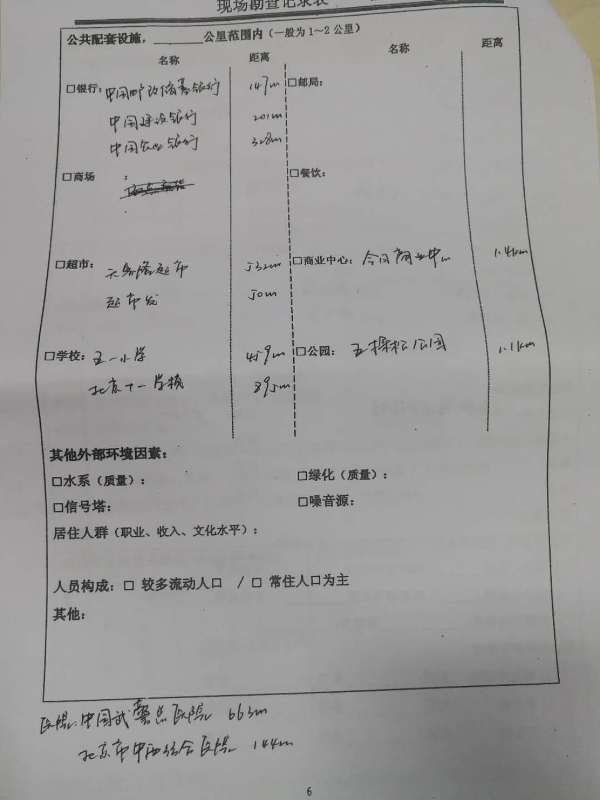 现场勘查记录表
公共配套设施，________公里范围内（一般为1～2公里）
名称 距离 名称 距离
□银行：中国邮政储蓄银行 147m □邮局：
中国建设银行 201m
中国农业银行 328m
□商场 ： □餐饮：
□超市： 超市 532m □商业中心：今日商业中心 1.4km
超市发 50m
□学校：五一小学 459m □公园：五棵松公园 1.1km
北京十一学校 895m
其他外部环境因素：
□水系（质量）： □绿化（质量）：
□信号塔： □噪音源：
居住人群（职业、收入、文化水平）：
人员构成：□ 较多流动人口 / □ 常住人口为主
其他：
医院：中国武警总医院 663m
北京市中西结合医院 144m
6